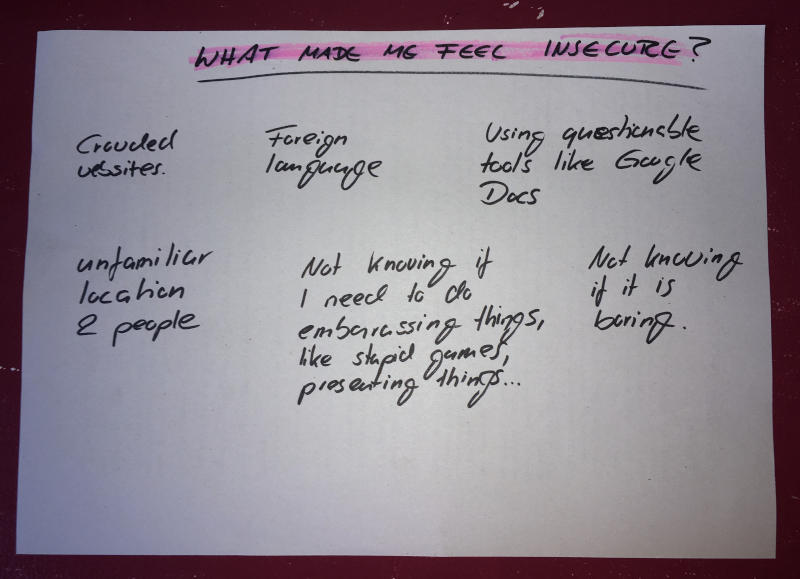 WHAT MADE ME FEEL INSECURE?
Crowded
websites.
Foreign
language
Using questionable
tools like Google
Docs
unfamiliar
location
& people
Not knowing if
I need to do
embarassing things,
like stupid games,
presenting things...
Not knowing
if it is
boring.